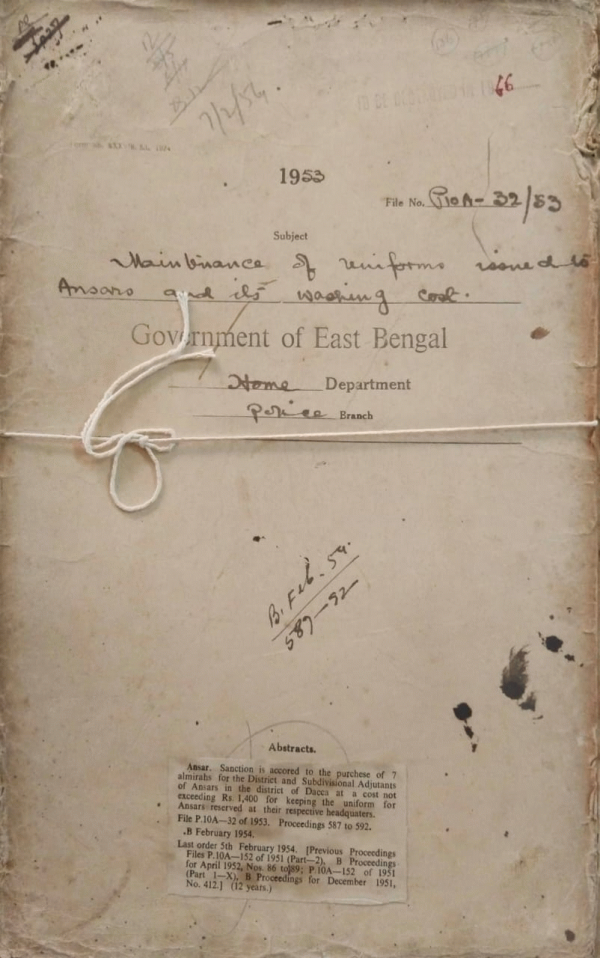 7/2/54.
66
1953
File No. P10A- 32/53
Subject
Maintinance of uniforms issued to
Ansars and its washing cost.
Government of East Bengal
Home Department
Police Branch
B. Feb. 54.
589-92
Abstracts.
Ansar. Sanction is accored to the purchese of 7
almirahs for the District and Subdivisional Adjutants
of Ansars in the district of Dacca at a cost not
exceeding Rs. 1,400 for keeping the uniform for
Ansars reserved at their respective headquaters.
File P.10A—32 of 1953. Proceedings 587 to 592.
.B February 1954.
Last order 5th February 1954. [Previous Proceedings
Files P.10A—152 of 1951 (Part—2), B Proceedings
for April 1952, Nos. 86 to 89; P.10A—152 of 1951
(Part 1—X), B Proceedings for December 1951,
No. 412.] (12 years.)